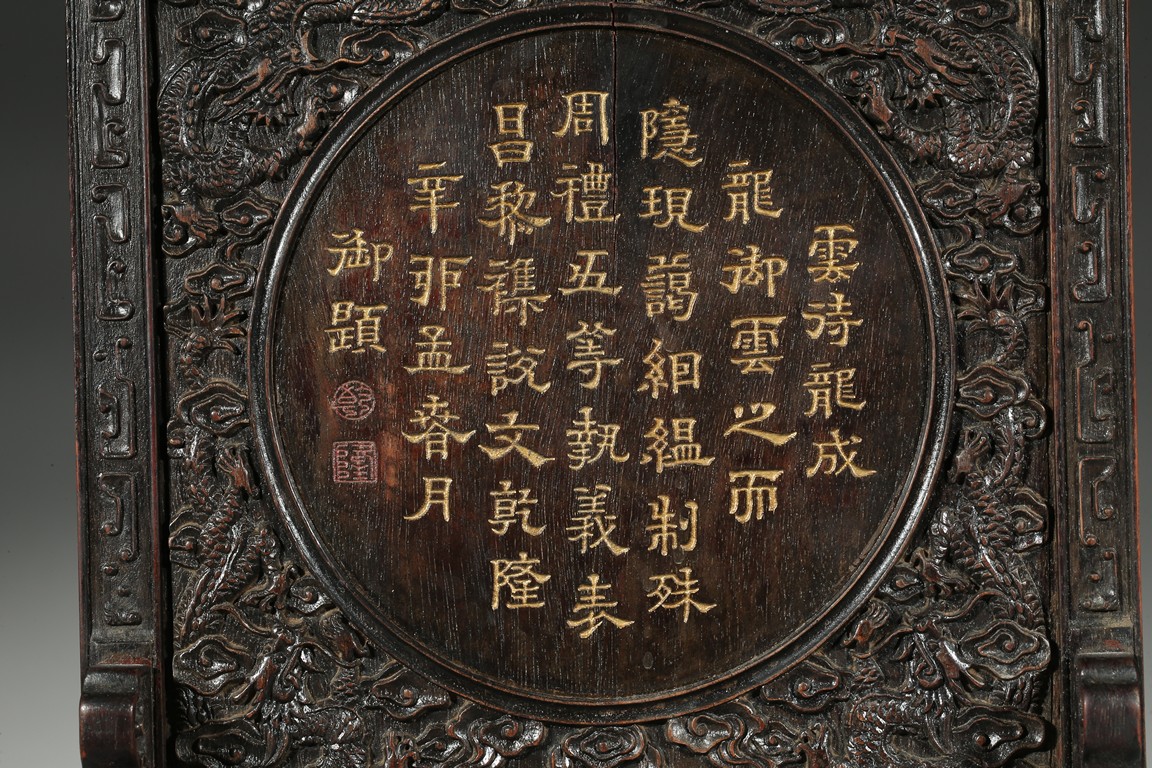 雲待龍成
龍御雲之而
隱現藹絪縕制殊
周禮五等執義表
昌黎襍說文乾隆
辛卯孟春月
御題